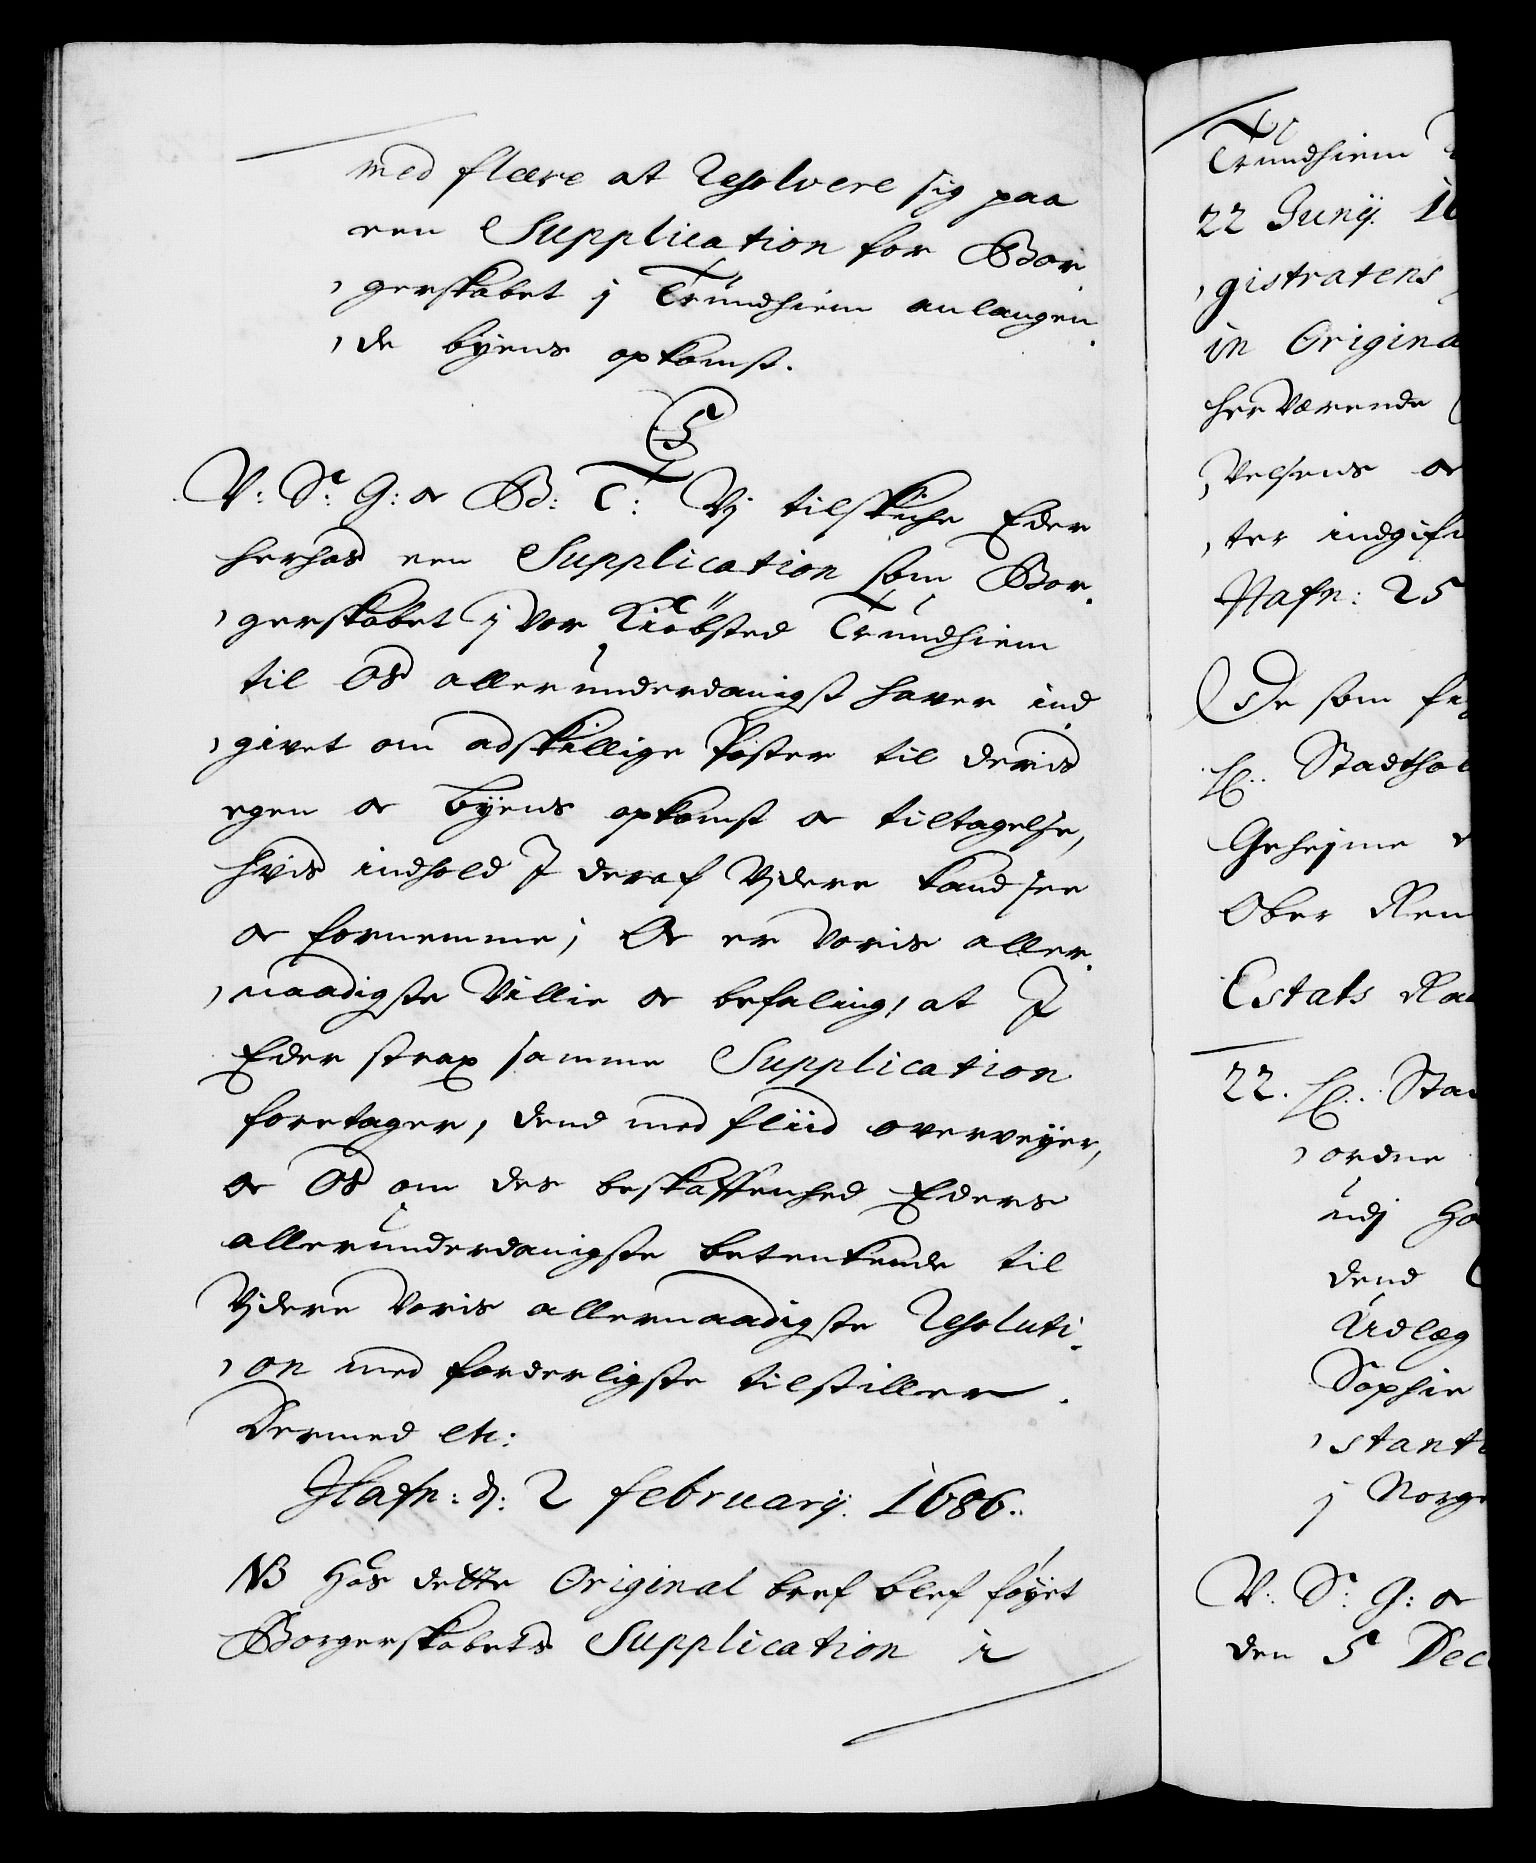 med fleere at Resolvere sig paa
een Supplication for Bor-
gerskabet j Trundhiem anlangen-
de byens opkomst.
C5
V: Sr. G: oc B: T: Vj tilskiche Eder
herhos een Supplication som Bor-
gerskabet j vor Kiøbsted Trundhiem
til Os allerunderdanigst haver ind-
givet om adskillige Poster til deris
egen oc byens opkomst oc tiltagelse,
hvis indhold I deraf Vjdere kand see
oc fornemme; Oc er voris aller-
naadigste Villie oc befaling, at I
Eder strax samme Supplication
foretager, dend med fliid overvejer,
oc Os om des beskaffenhed Eders
allerunderdanigste betenkende til
Vjdere Voris allernaadigste Resoluti-
on med forderligste tilstiller.
Dermed etc:
Hafn: d: 2 februarij. 1686.
NB Hos dette Original bref blef føyet
Borgerskabets Supplication i
Trundhiem
22 Junij. 16
gistratens
in Origina
herværende
velsens oc
ter indgif
Hafn: 25
De som
H: Stadthol
Geheime
Ober Ren
Estats Raa
22. H: Sta
ordne
udj Ho
dend
Udlæg
Sophie
stant
j Norge
V: Sr. G: oc
den 5 Dec